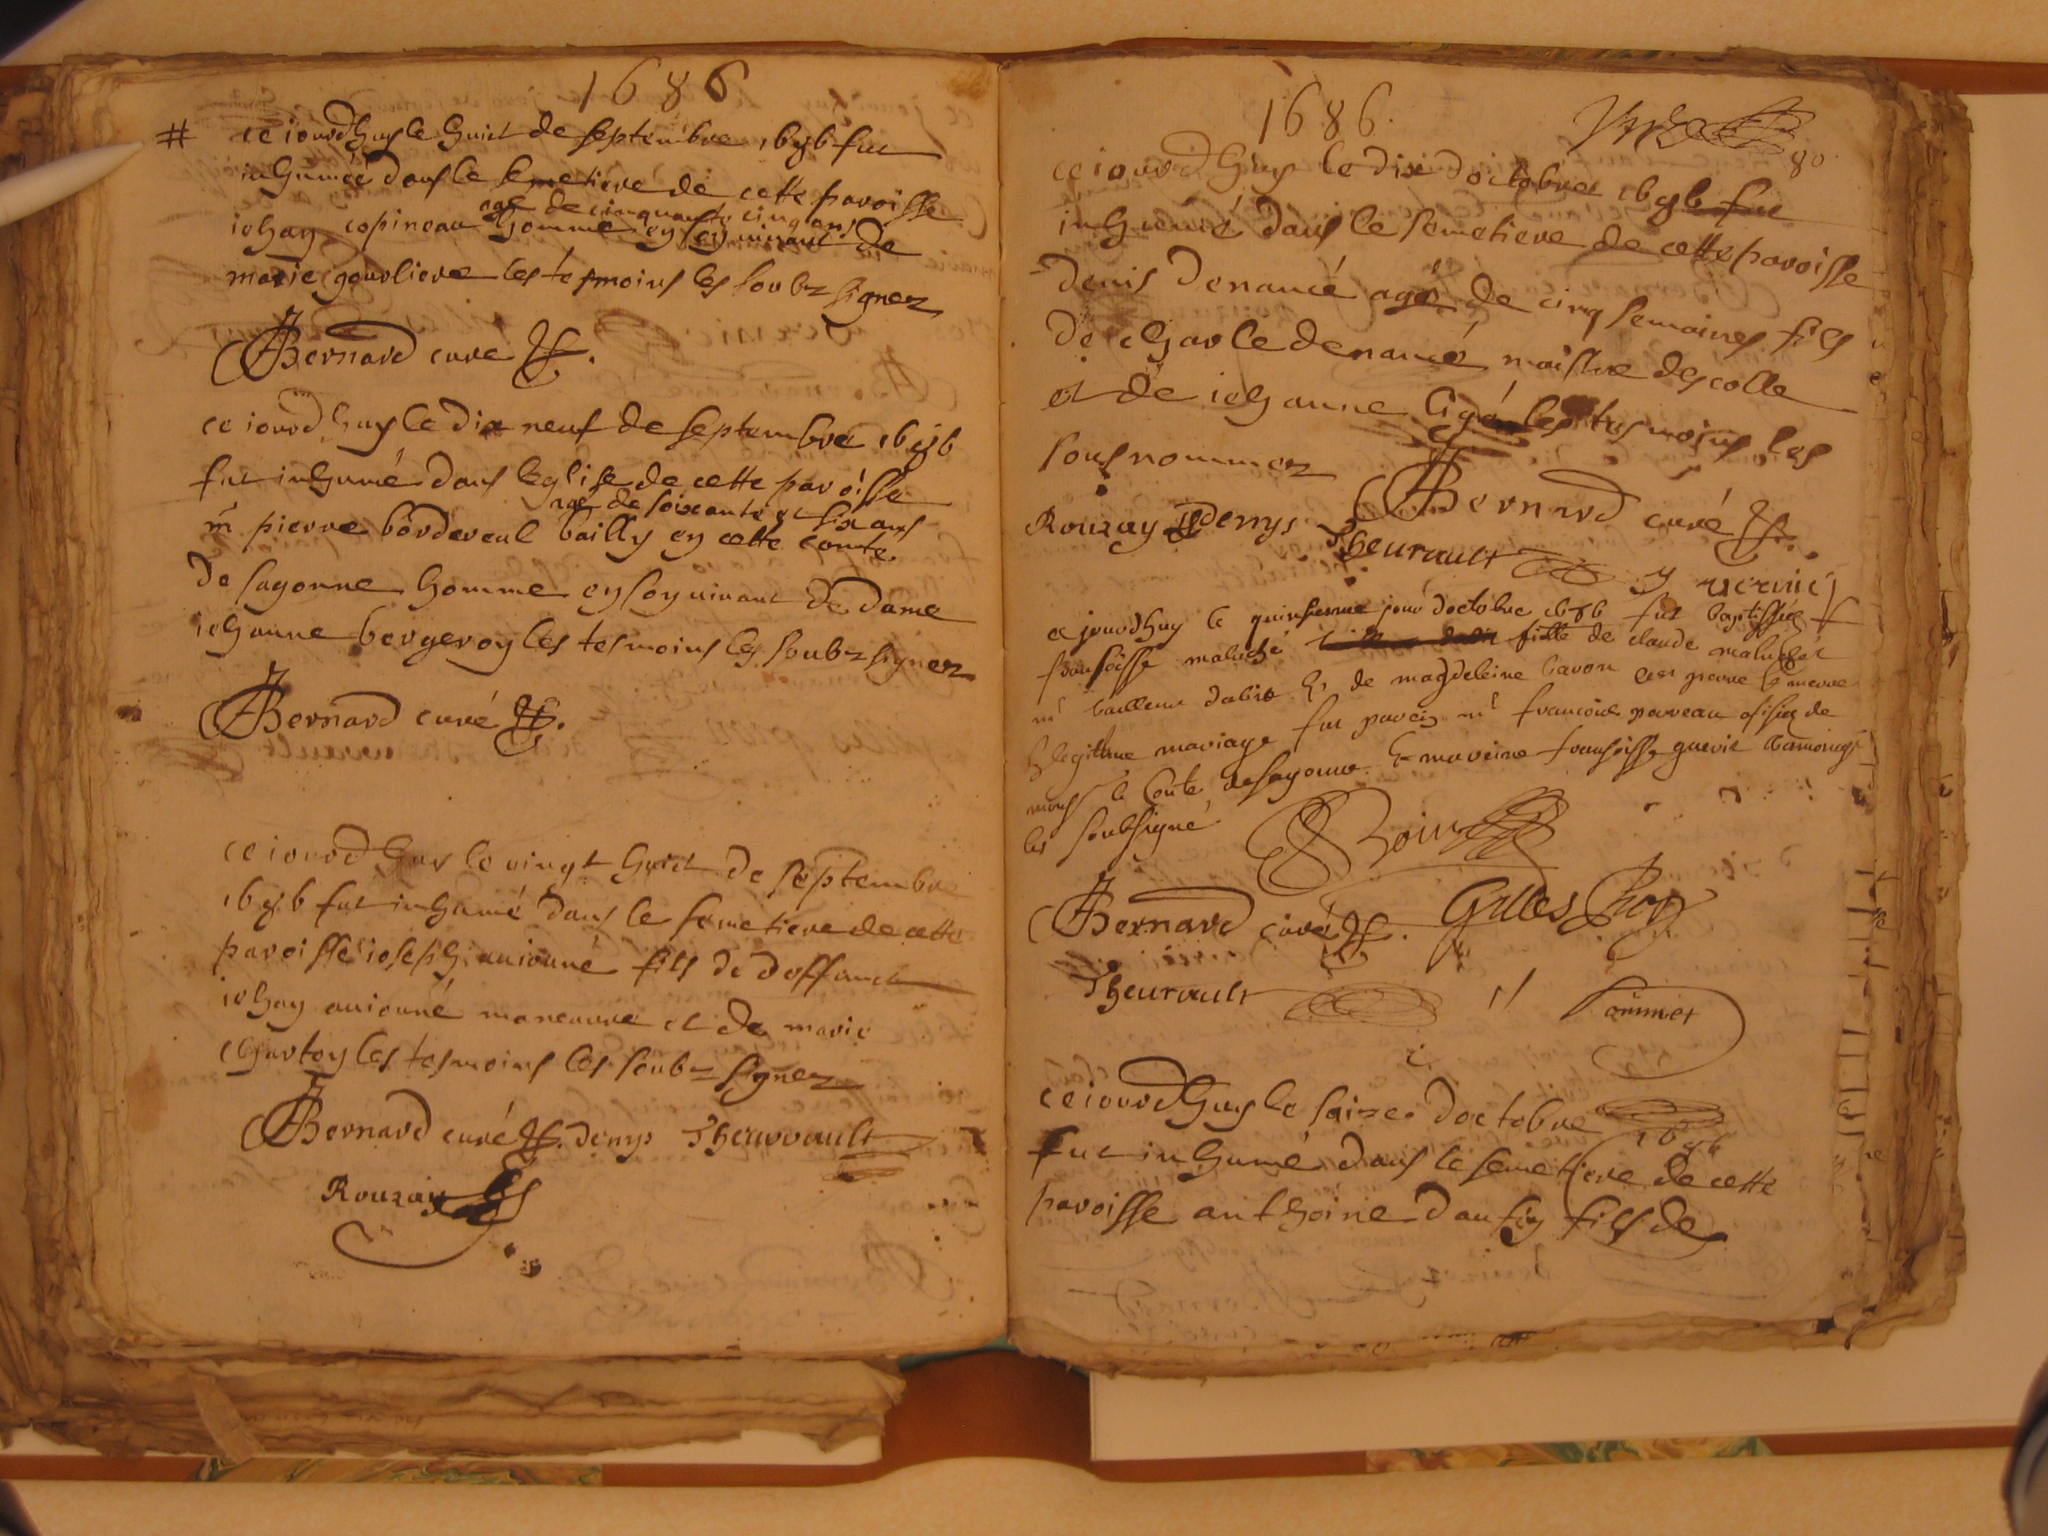 1686
# ce iourdhuy le huict de septembre 1686 fut
inhumée dans le semetiere de cette paroisse
agé de cinquante cinq ans
iehan copineau homme en son vivant de
marie gourliere les tesmoins les soubz signez
Bernard curé
ce iourdhuy le dix neuf de septembre 1686
fut inhumé dans leglise de cette paroisse
agé de soixante et six ans
m pierre bordereul bailly en cette comté
de sagonne homme en son vivant de dame
iehanne bergeron les tesmoins les soubz signez
Bernard curé
ce iourdhuy le vingt huict de septembre
1686 fut inhumé dans le semetiere de cette
paroisse ioseph auiouné fils de deffunct
iehan auiouné maneuvre et de marie
charton les tesmoins les soubz signez
Bernard curé denys Theurault
Rouzay
1686.
80
ce iourdhuy le dix doctobre 1686 fut
inhumé dans le semetiere de cette paroisse
denis denancé agé de cinq semaines fils
de charle denancé maistre descolle
et de iehanne les tesmoins les
sousnommez
Bernard curé
Rouzay denys Theurault
ce jourdhuy le quinsiesme jour doctobre 1686 fut baptissée
fransoisse maluché fille de claude maluché
mr tailleur dabis Et de magdeleine
legitime mariage fut parein mr francois
mons le Conte de sagonne Et mareine fransoisse guerit
les soubsigné
Bernard curé Gilles Roy
Theurault
ce iourdhuy le saize doctobre 1686
fut inhumé dans le semetiere de cette
paroisse anthoine daufin fils de